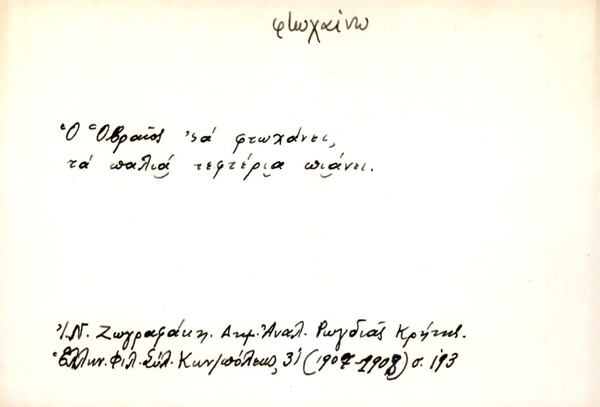 φτωχαίνω
Ὁ Ὁβραῖος 'νά φτωχάνει,
τά παλιά τεφτέρια πιάνει.
Ἰ. Ν. Ζωγραφάκη. Δημ. Ἀναλ. Ρωγδιᾶς Κρήτης.
Ἑλλην. Φιλ. Σύλ. Κων/πόλεως, 31 (1907-1908) σ. 193